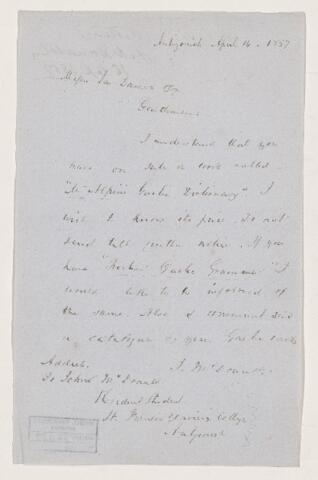 Antigonish April 16. 1857
Gentlemen
I understand that you
have on sale a work called
"McAlpine Gaelic Dictionary". I
wish to know its price. Do not
send till further notice. If you
have "Forbes' Gaelic Grammar" I
would like to be informed of
the same. Also I
a catalogue of your Gaelic works
J. McDonald
Address.
To John McDonald
Resident Student
St. Francis Xavier's College
Antigonish